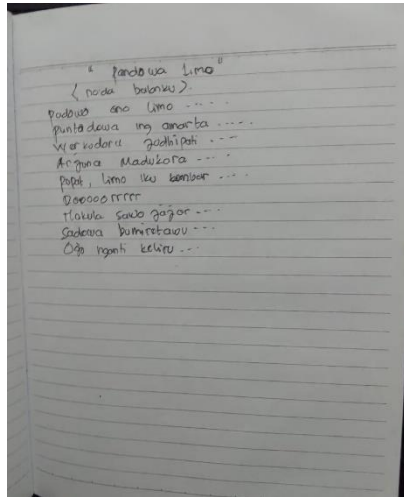 " Pandowa Limo "
( noda balonku ).
Padowo ono limo ....
puntadewa ing amarta .....
Werkudara Jodhipati ....
Arjuna Madukora ....
Papat, limo iku kembar ....
Dooooorrrrr
Nakula sawo jajar ....
Sadewa bumiretawu ...
Ojo nganti keliru ...